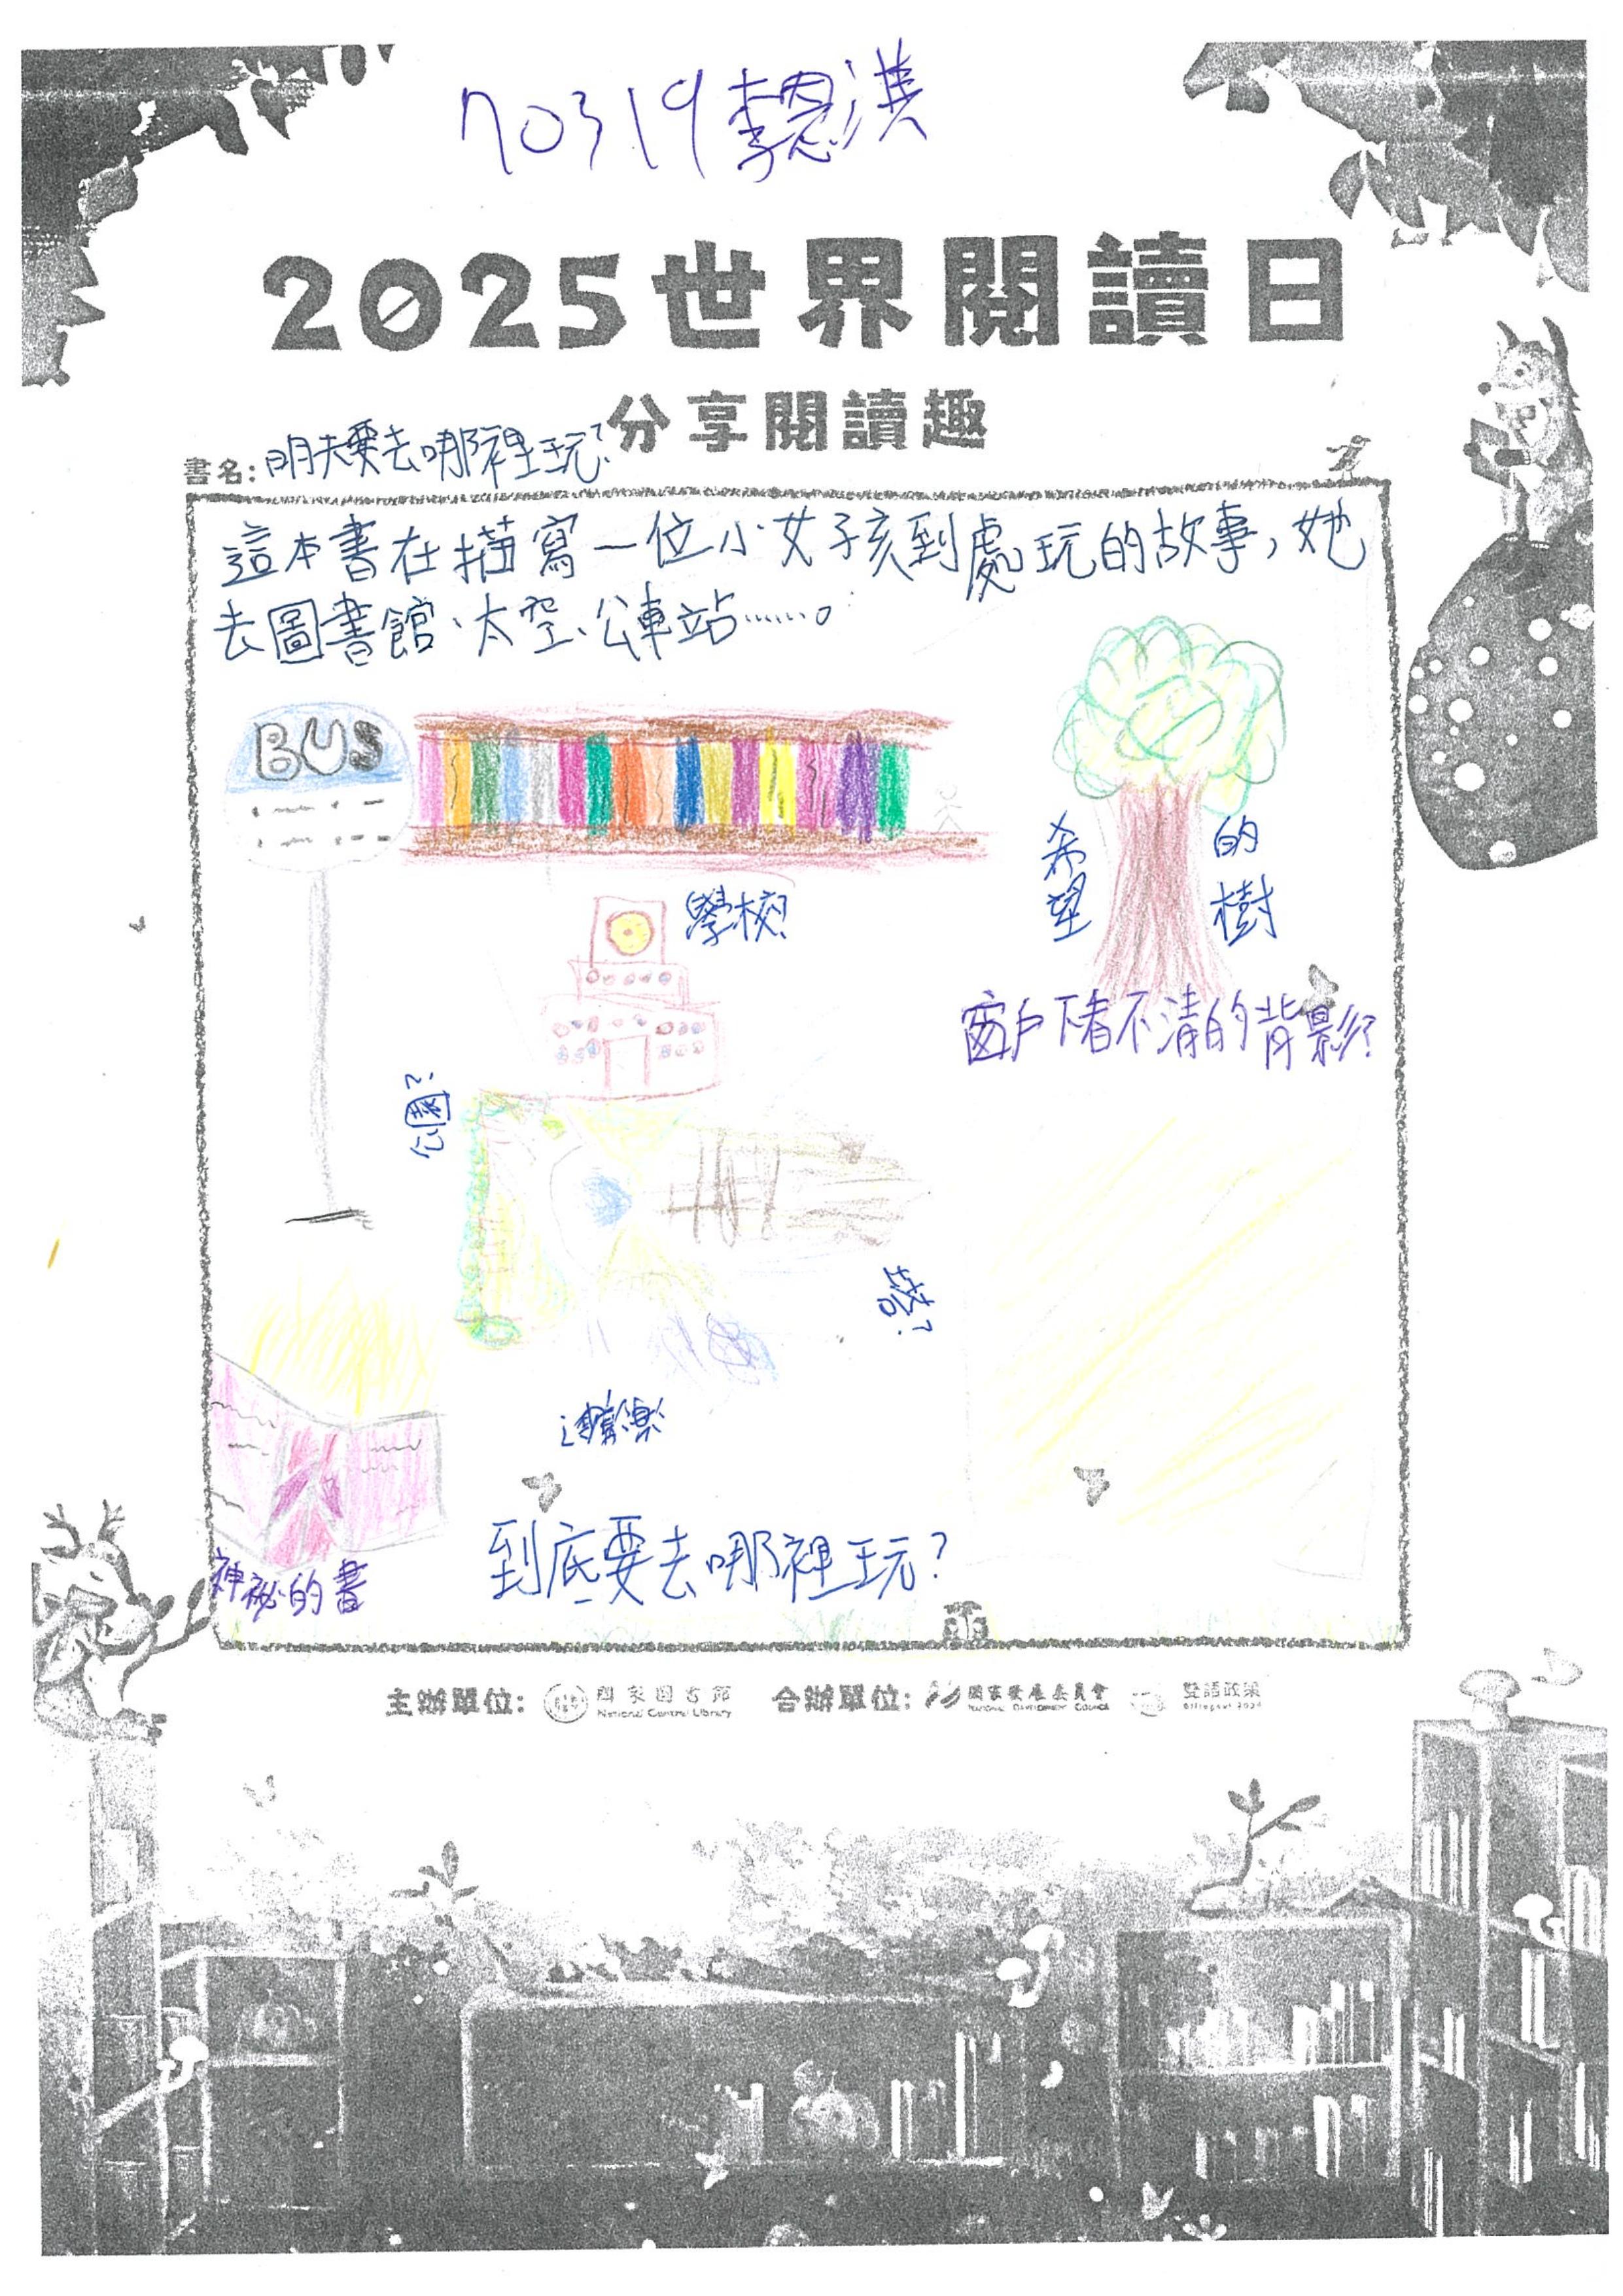 70319李恩漢
2025世界閱讀日
分享閱讀趣
書名:明天要去哪裡玩?
這本書在描寫一位小女孩到處玩的故事,她
去圖書館、太空、公車站……。
BUS
學校?
希望的樹
窗戶下看不清的背影?
公園?
塔?
神祕的書
到底要去哪裡玩?
主辦單位: 國家圖書館 合辦單位: 國家發展委員會 雙語政策
National Central Library